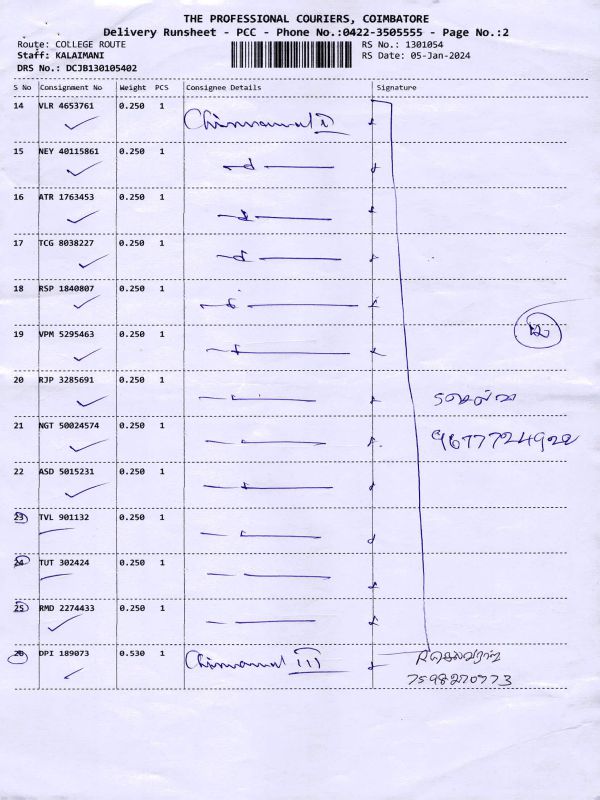 THE PROFESSIONAL COURIERS, COIMBATORE
Delivery Runsheet - PCC - Phone No.:0422-3505555 - Page No.:2
Route: COLLEGE ROUTE RS No.: 1301054
Staff: KALAIMANI RS Date: 05-Jan-2024
DRS No.: DCJB130105402
S No Consignment No Weight PCS Consignee Details Signature
14 VLR 4653761 0.250 1
15 NEY 40115861 0.250 1
16 ATR 1763453 0.250 1
17 TCG 8038227 0.250 1
18 RSP 1840807 0.250 1
19 VPM 5295463 0.250 1
12
20 RJP 3285691 0.250 1
21 NGT 50024574 0.250 1
9677724922
22 ASD 5015231 0.250 1
23 TVL 901132 0.250 1
24 TUT 302424 0.250 1
25 RMD 2274433 0.250 1
26 DPI 189073 0.530 1 III
7598270773